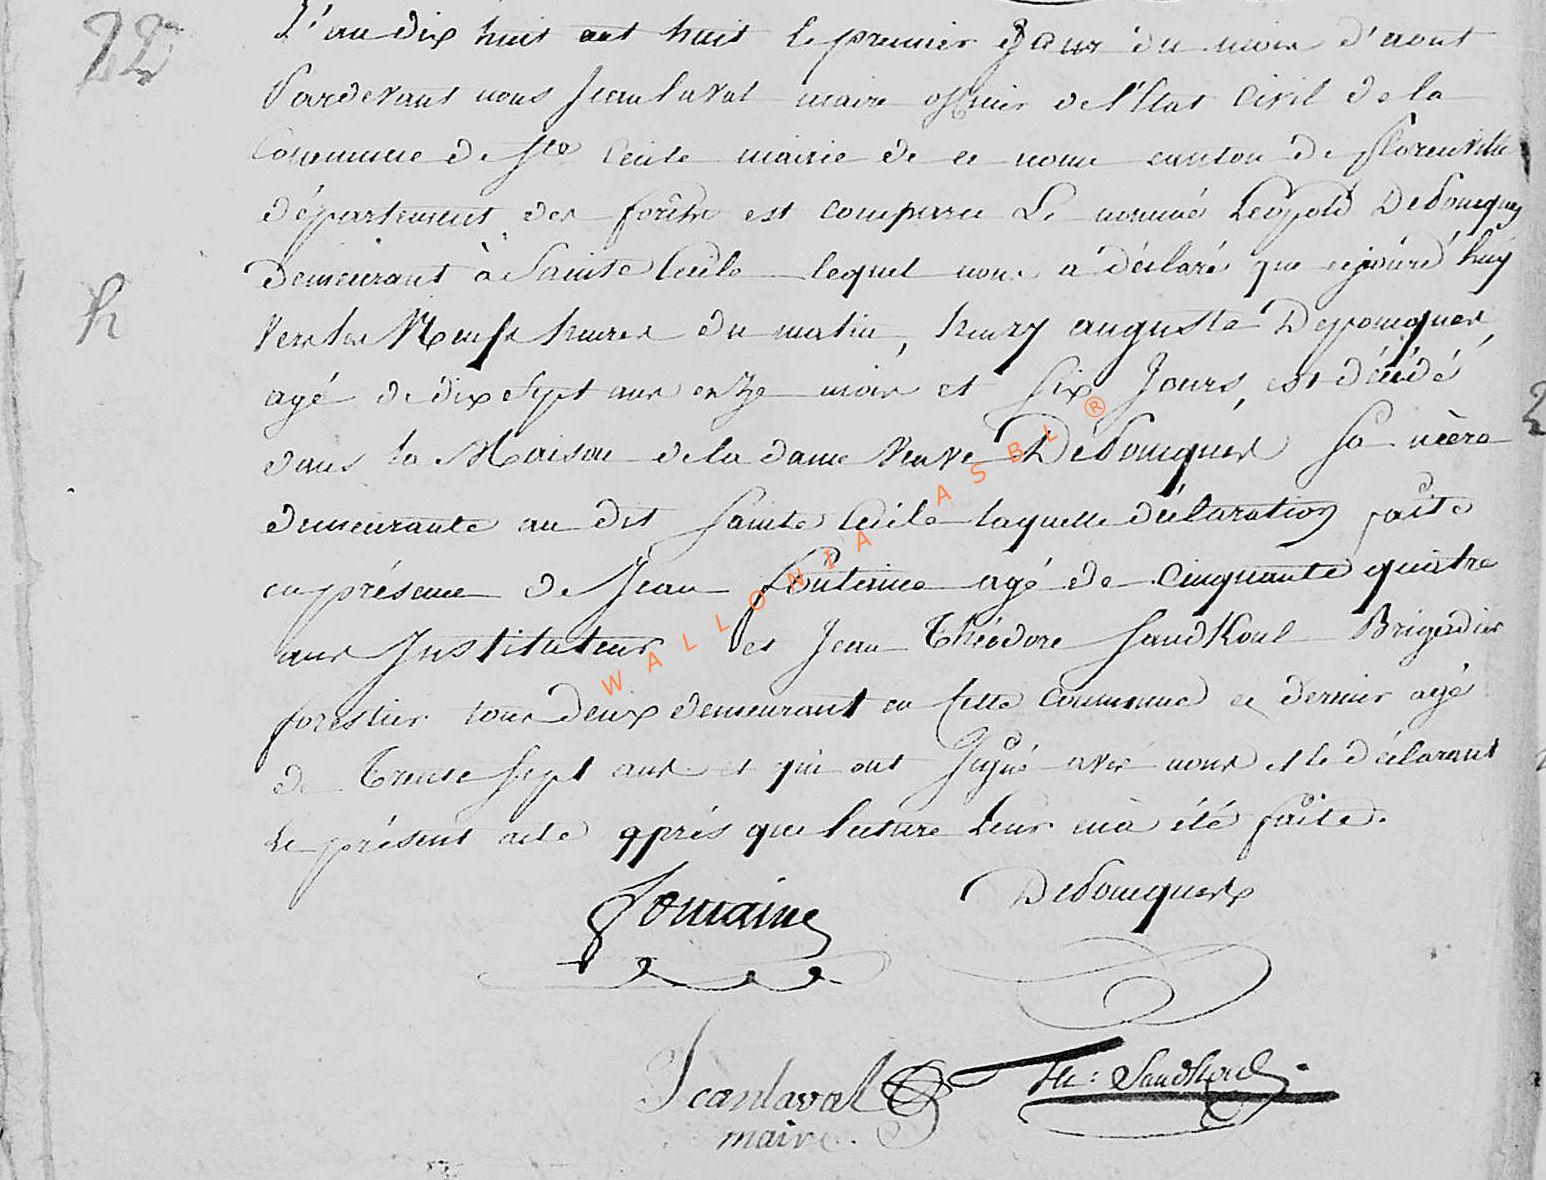 22
L'an dix huit cent huit le premier jour du mois d'aout
Pardevant nous Jean laval maire officier de l'Etat Civil de la
Commune de Ste Cecile mairie de ce nom canton de florenville
département des forêts est comparu Le nommé Léopold Desomques
Demeurant à Sainte Cécile lequel nous a déclaré que cejourd'huy
h
Vers les Neufs heures du matin, henry auguste
agé de dix sept ans onze mois et six Jours, est décédé
dans la Maison de la dame Veuve sa mère
demeurante au dit Sainte Cécile laquelle déclaration faite
en présence de Jean fontaine agé de Cinquante quatre
ans Instituteur et Jean Théodore Sandkoul Brigadier
forestier tous deux demeurant en cette commune ce dernier agé
de Trente Sept ans et qui ont Signé avec nous et le déclarant
le présent acte après que lecture leur en à été faite.
fontaine
Jean laval Th: Sandkoul
maire.
WALLONIA ASBL ®